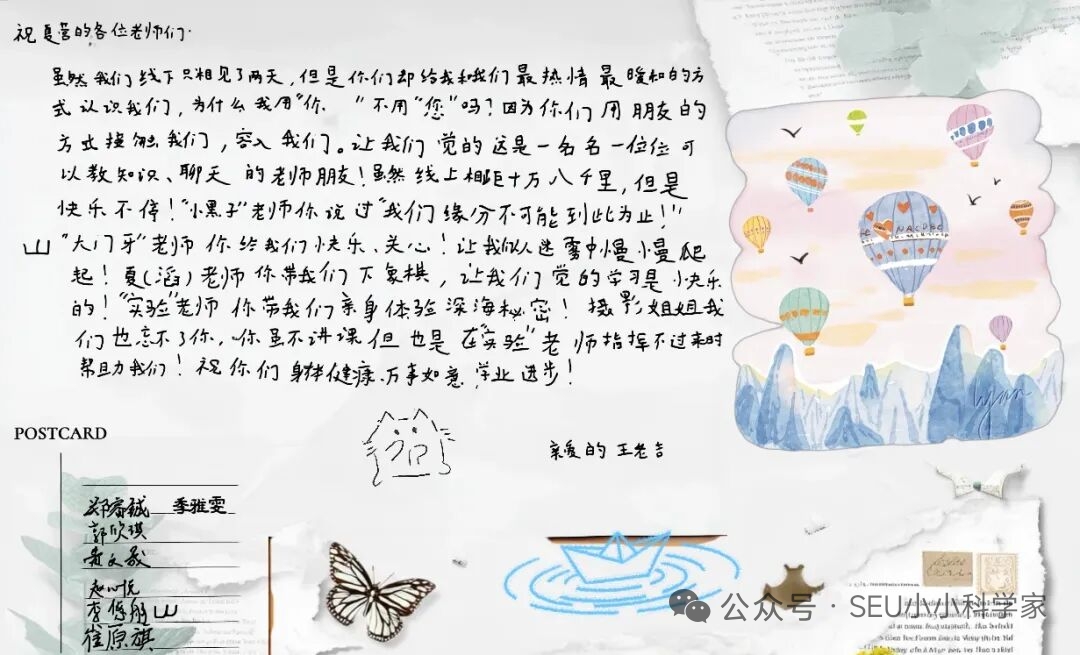 祝夏营的各位老师们:
虽然我们线下只相见了两天,但是你们却给我和我们最热情最暖和的方
式认识我们,为什么我用"你 "不用"您"吗?因为你们用朋友的
方式接触我们,容入我们。让我们觉的这是一名名一位位可
以教知识、聊天的老师朋友!虽然线上相距十万八千里,但是
快乐不停!"小黑子"老师你说过"我们缘分不可能到此为止!"
山"大门牙"老师你给我们快乐、关心!让我们从迷雾中慢小慢爬
起!夏(滔)老师你带我们下象棋,让我们觉的学习是快乐
的!"实验"老师你带我们亲身体验深海秘密!摄影姐姐我
们也忘不了你,你虽不讲课但也是在"实验"老师指挥不过来时
帮助我们!祝你们身体健康、万事如意、学业进步!
亲爱的王老吉
POSTCARD
郑睿铖 季雅雯
郭欣琪
赵心悦
山
崔原旗
Lynn
公众号 · SEU小小科学家